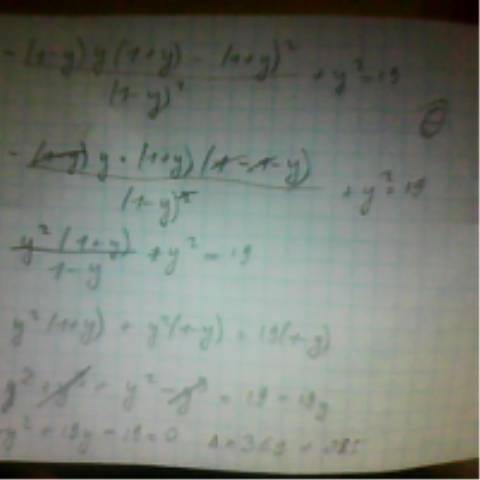 - (1-y) y (1+y) - (1+y)² / (1-y)² + y² = 19
- (1-y) y · (1+y) (1-1-y) / (1-y)² + y² = 19
y² (1+y) / 1-y + y² = 19
y² (1+y) + y² (1-y) = 19(1-y)
y² + y³ + y² - y³ = 19 - 19y
2y² + 19y - 19 = 0 Δ = 369 +